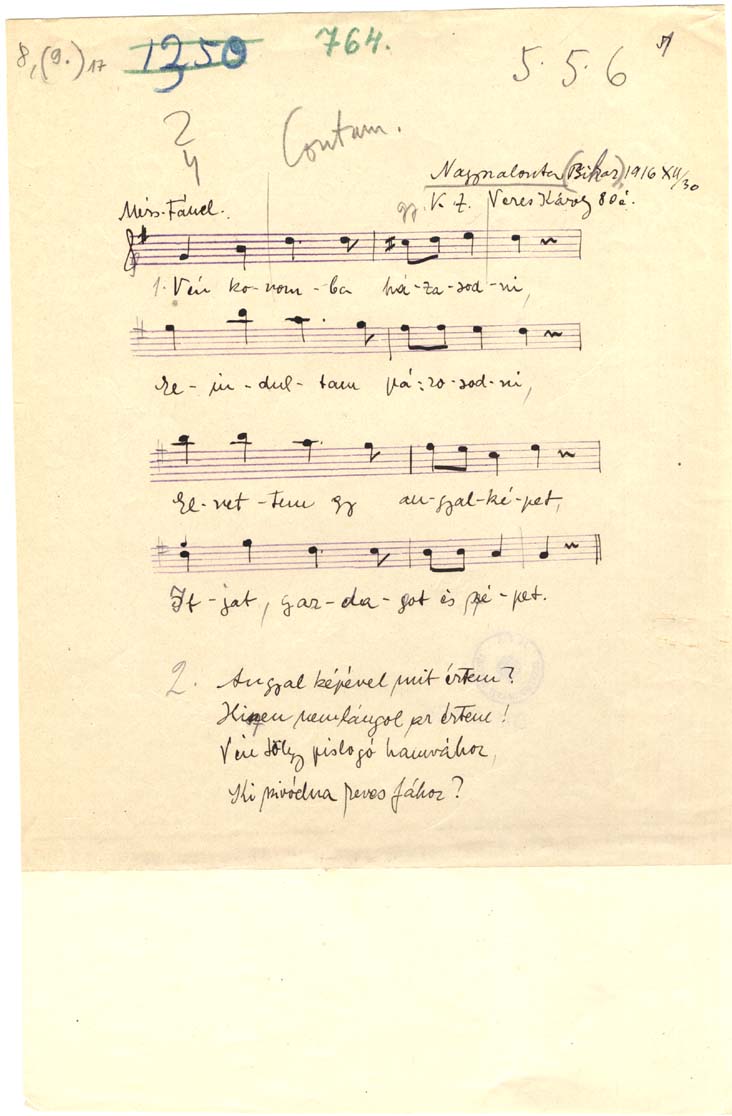 8, (9.) 17 1250 764. 5. 5. 6
2/4 Contam.
Nagyszalonta (Bihar), 1916 XII/30
gy. K. Z. Veres Károly 80 é.
Mérs. Táncl.
1. Vén ko-rom-ba há-za-sod-ni,
El-in-dul-tam pá-ro-sod-ni,
El-vet-tem egy an-gyal-ké-pet,
If-jat, gaz-da-got és szé-pet.
2. Angyal képével mit értem?
Hiszen nem lángol az értem!
Vén tölgy pislogó hamvához,
Ki szivódna szeves fához?